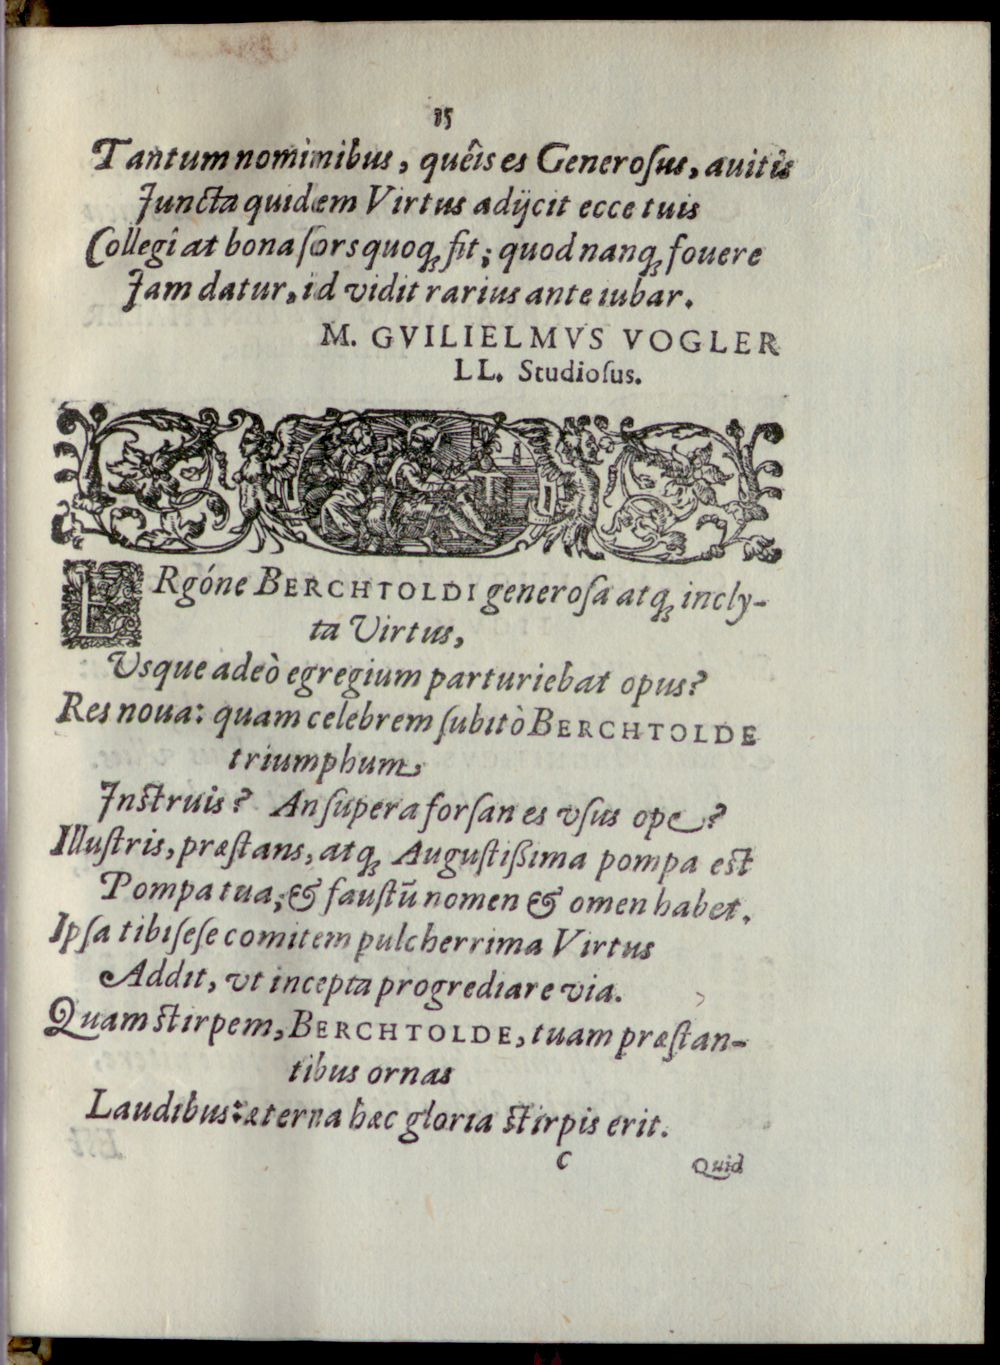 15
Tantum nominibus, quêis es Generoſus, auitis
Juncta quidem Virtus adijcit ecce tuis
Collegî at bona ſors quoq; fit; quod nanq; fouere
Jam datur, id vidit rarius ante iubar.
M. GVILIELMVS VOGLER
LL. Studioſus.
ERgóne BERCHTOLDI generoſa atq; incly-
ta Virtus,
Vsque adeò egregium parturiebat opus?
Res noua: quam celebrem ſubitò BERCHTOLDE
triumphum
Jnſtruis? An ſupera forſan es vſus ope?
Illuſtris, præſtans, atq; Auguſtißima pompa eſt
Pompa tua; & fauſtū nomen & omen habet.
Ipſa tibi ſeſe comitem pulcherrima Virtus
Addit, vt incepta progrediare via.
Quam ſtirpem, BERCHTOLDE, tuam præſtan-
tibus ornas
Laudibus: æterna hæc gloria ſtirpis erit.
C Quid